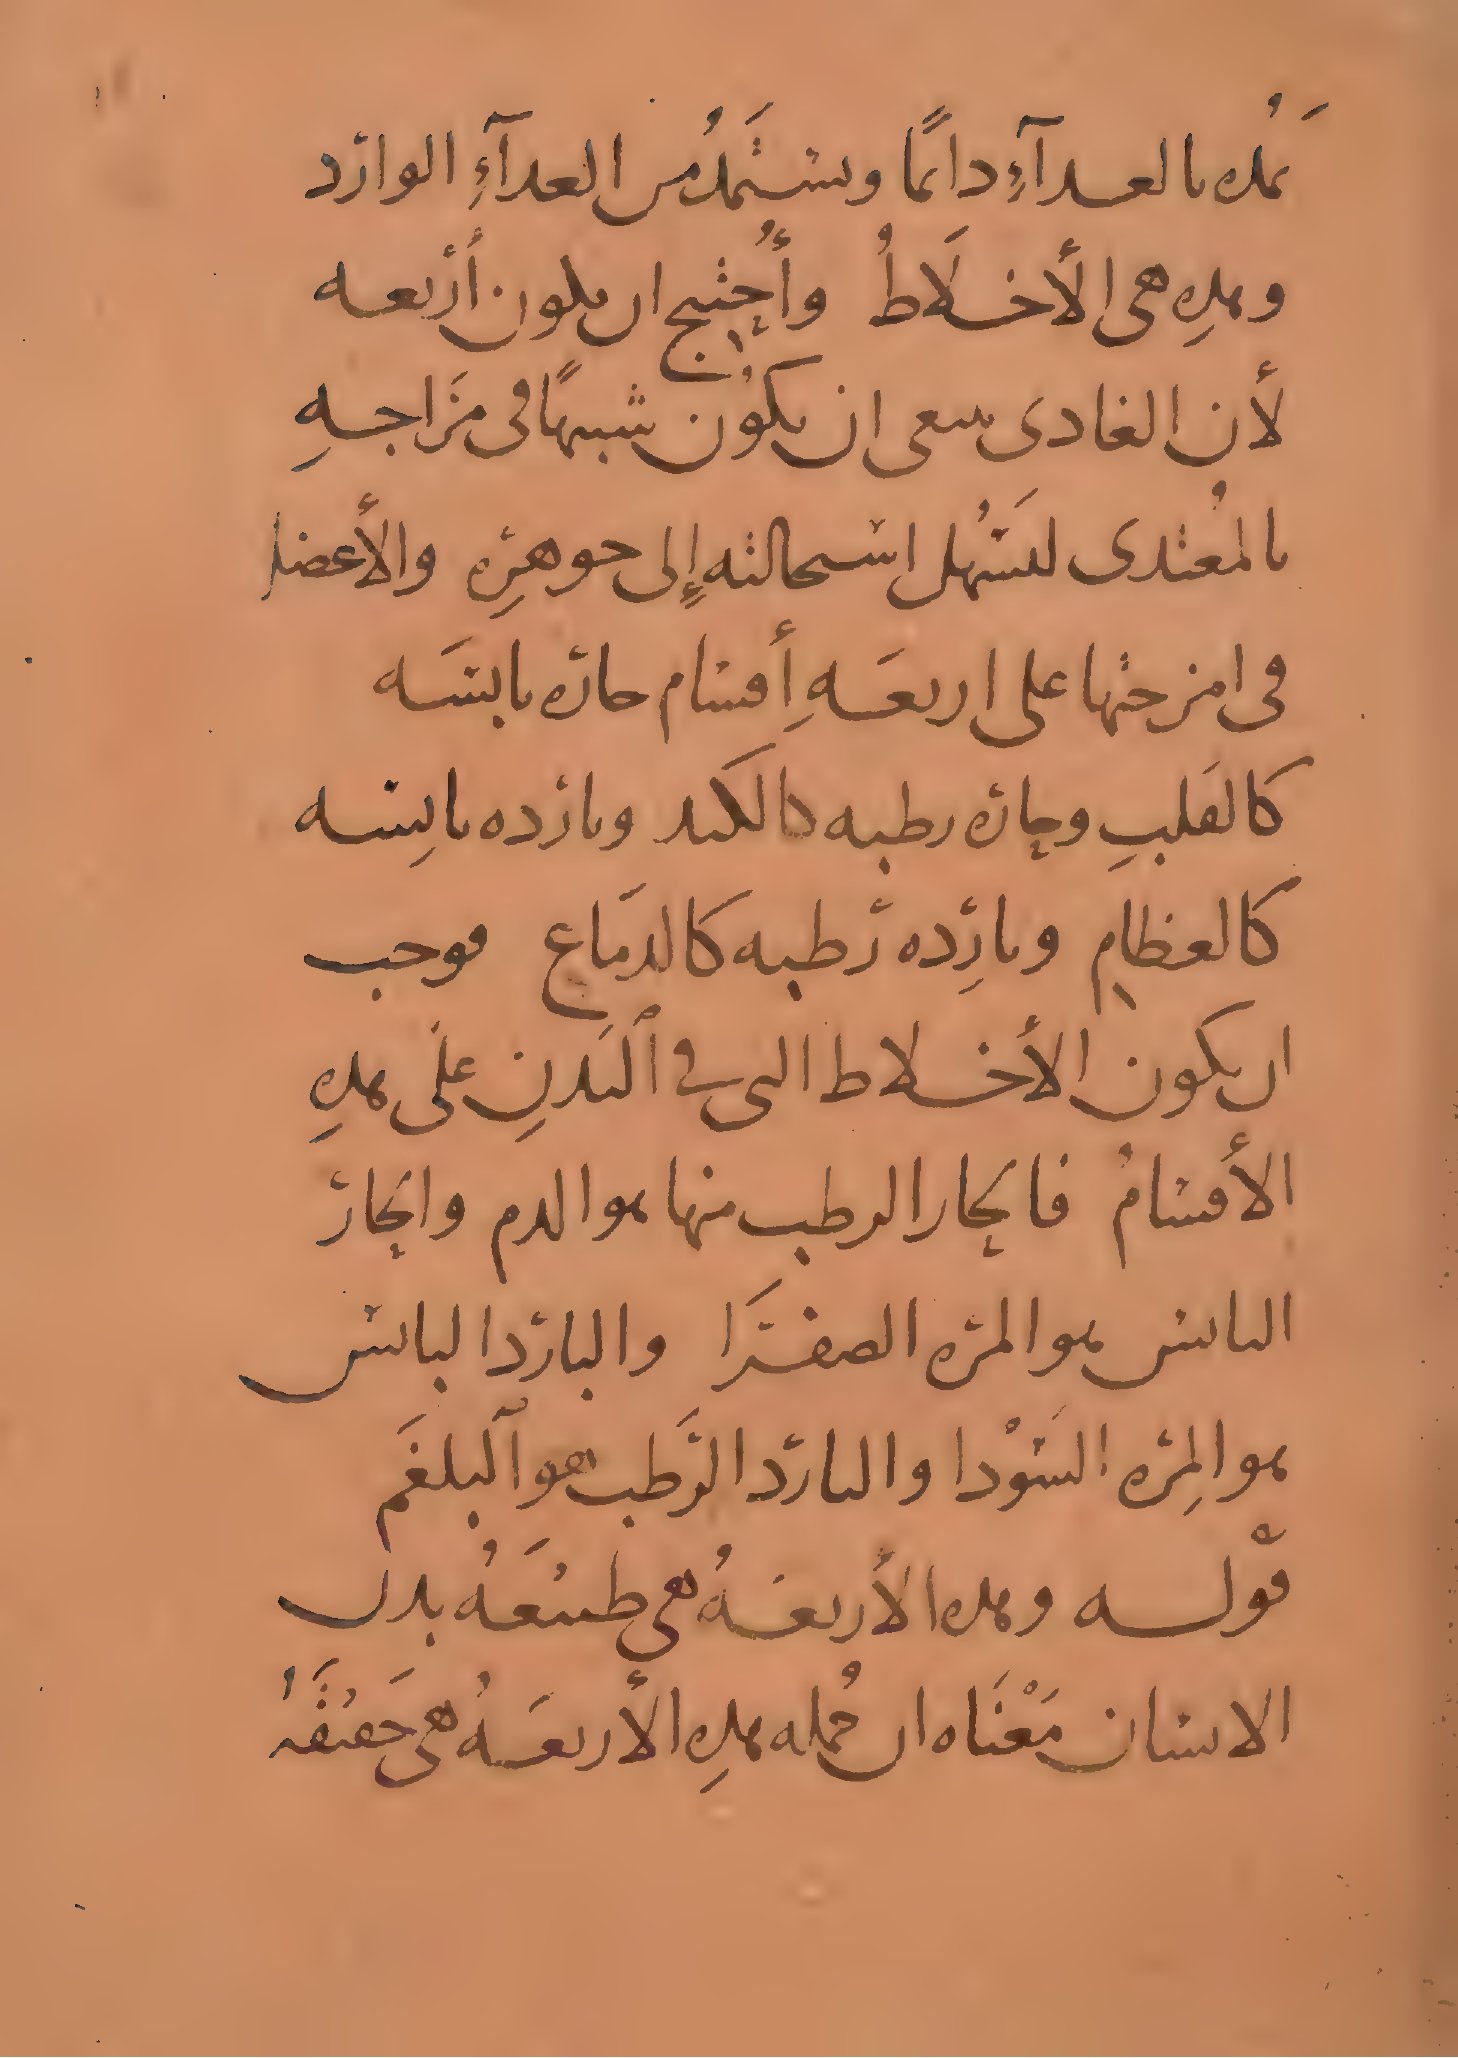 يَمُدُه بالغدآءِ دائمًا ويستَمدُ من الغدآءِ الوارد
وهدهِ هى الأخلَاطُ وأُحتيج ان يكون أربعه
لأن الغادى ينبغى ان يكوُن شبيهًا فى مزَاجهِ
بالمُغتدى ليَسهُل استحالته إلى جوهرِه والأعضا
فى امزجتها على اربعَهِ أقسام حاره يابسَه
كالقَلبِ وحاره رطبه كالكبد وبارده يابِسه
كالعظام وبارِده رطبه كالدمَاغ فوجب
ان يكون الأخلاط التى فى ٱلبَدنِ علَى هدهِ
الأقسامُ فالحار الرطب منها هو الدم والحار
اليابس هو المره الصفرَا والبارد اليابس
هو المِره السَوْدا والبارد الرَطب هو ٱلبلغَم
قوْله وهده الأربعهُ هى طبيعَهُ بدن
الانسان مَعْنَاه ان جُمله هدهِ الأربعَهُ هى حَقيقَهُ